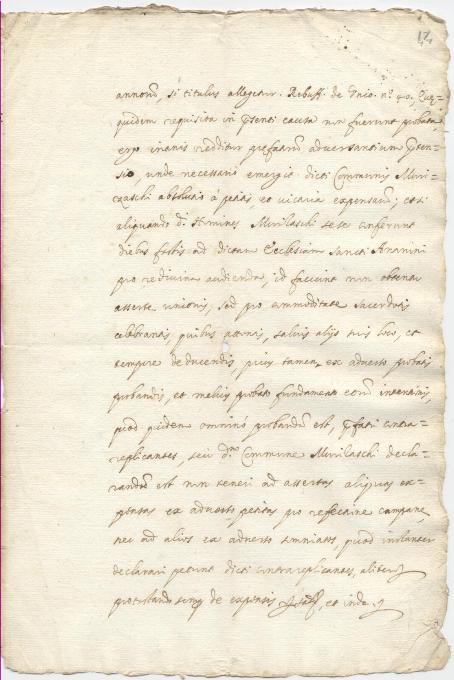 12
annorũ, si titulus allegetur. Rebuff. de
quidem requisita in pñti causa non fuerunt probata,
ergo inanis redditur prefatorũ adversantium ptten=
sio, unde necessario emergit dicti Communis Muri=
absolutio à petitis, et victoria expensarũ; et si
aliquando di Homines Murilaschi sese conferunt
diebus festis ad dictam Ecclesiam Sancti
pro re divina audienda, id faciunt non obtentu
asserte unionis, sed pro commoditate sacerdotis
celebrantis, quibus attentis, salvis alijs suis loco, et
tempore deducendis, prius tamen ex adverso probatis
probandis, et melius probato fundamento eorũ intentionis,
quod quidem omninò probandũ est, pfati contra=
replicantes, seu dm̃ Commune Murilaschi decla=
randũ est non teneri ad assertas aliquas ex=
pensas ex adverso petitas pro refectione campane,
nec ad alios ex adverso, quod instanter
declarari petunt dicti contrareplicantes, aliter
protestando de expensis, et inde